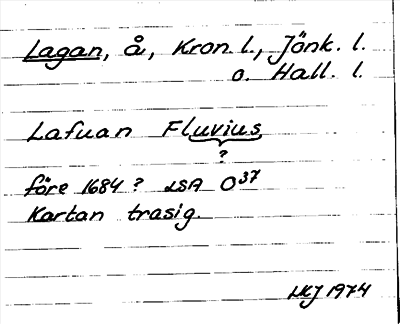 Lagan, å, Kron. l., Jönk. l.
o. Hall. l.
Lafuan Fluvius
?
före 1684 ? LSA O37
Kartan trasig.
1974